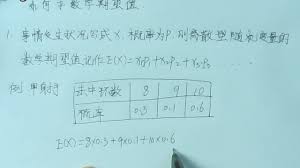 如何求数学期望值
1. 事情发生状况分成X, 概率为P, 则离散型随机变量的
数学期望值记作E(X)=X₁P₁+X₂P₂+X₃P₃
例 甲射手
击中环数 8 9 10
概率 0.3 0.1 0.6
E(X)=8×0.3+9×0.1+10×0.6